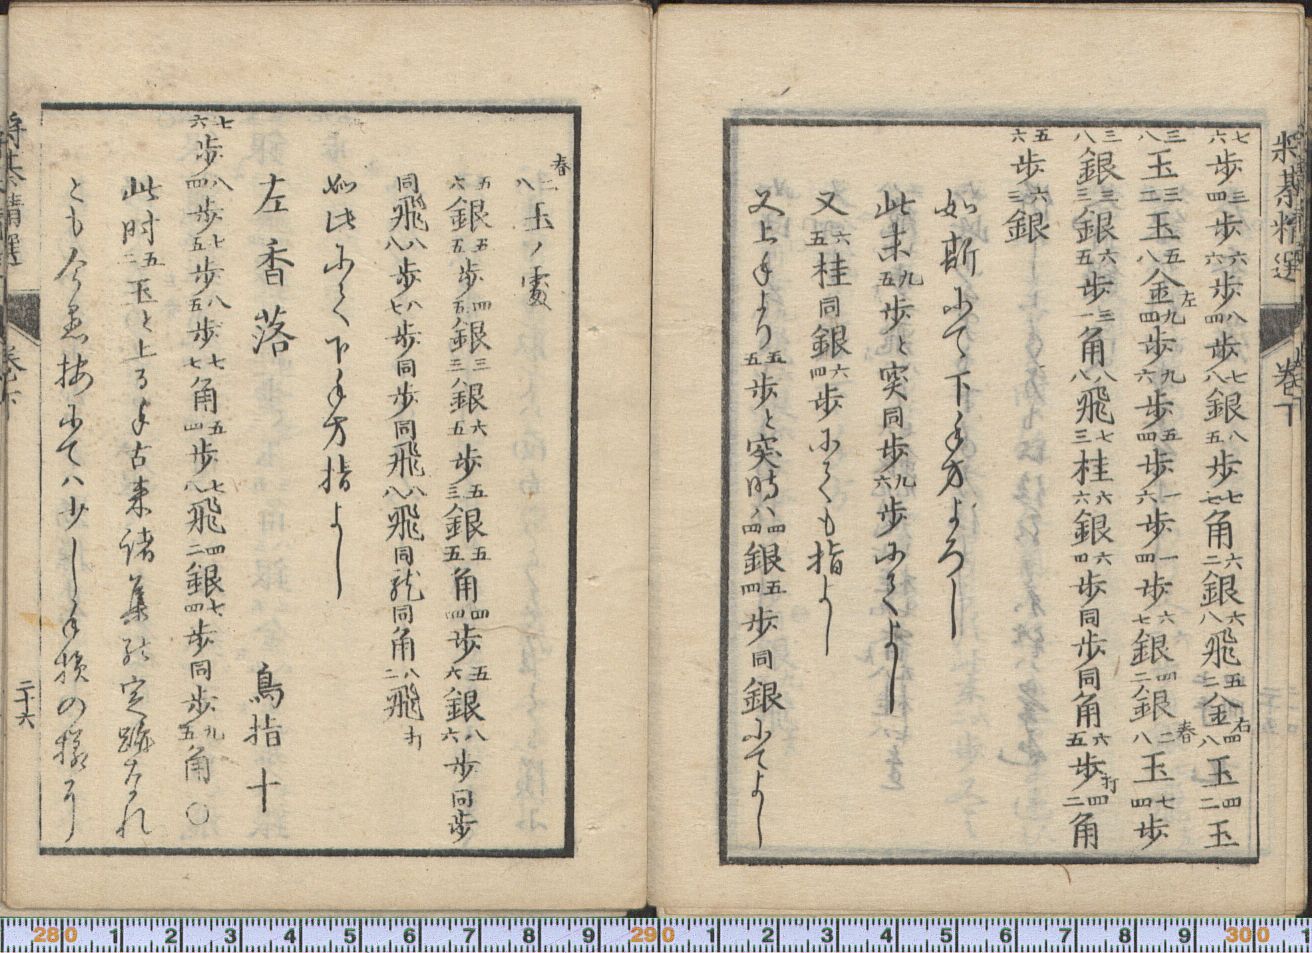 将棊精選 巻下
七六歩 三四歩 六六歩 八四歩 七八銀 八五歩 七七角 六二銀 六八飛 五七金右 四八玉 四二玉
三八玉 三二玉 五八金左 九四歩 九六歩 五四歩 一六歩 一四歩 六七銀 四二銀 二八玉 七四歩
三八銀 三三銀 六五歩 三一角 八八飛 七三桂 六六銀 六四歩 同歩 同角 六五歩打 四二角
五六歩 六三銀
如斯にて下手方よろし
此末九五歩と突同歩九六歩にてよし
又六五桂同銀六四歩にても指よし
又上手より五五歩と突時ハ四四銀五四歩同銀にてよし
春二八玉ノ処
五六銀 五五歩 四五銀 三八銀 六五歩 五三銀 五五角 四四歩 五六銀 八六歩 同歩
同飛 八八歩 八七歩 同歩 同飛 八八飛 同龍 同角 八二飛打
如此にて下手方指よし
左香落 鳥指十
七六歩 八四歩 七五歩 八五歩 七七角 五四歩 七八飛 四二銀 七四歩 同歩 九五角 〇
此时五二玉と上る手古来诸集能定跡なれ
とも今愚按にてハ少し手損の様なり
将棊精選 巻下
二十六
280 1 2 3 4 5 6 7 8 9 290 1 2 3 4 5 6 7 8 9 300 1